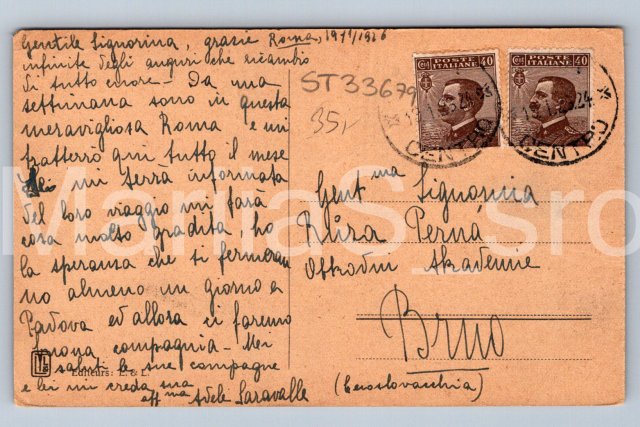 Gentile Signorina, grazie Roma, 19/1/1926
infinite degli auguri che ricambio
di tutto cuore. Da una
settimana sono in questa
meravigliosa Roma e mi
tratterrò qui tutto il mese
Se mi terrà informata
del loro viaggio mi farà
cosa molto gradita, ho
la speranza che si fermeran
no almeno un giorno a
Padova ed allora ci faremo
buona compagnia - Mei
saluti le sue compagne
e lei mi creda sua
aff ma Adele Saravalle
Editeurs: E. & L.
ST33679
35,-
POSTE ITALIANE
CENT 40
POSTE ITALIANE
CENT 40
CENTRO
CENTRO
Gent ma Signorina
Růža Perná
Obchodní Akademie
Brno
(Cecoslovacchia)